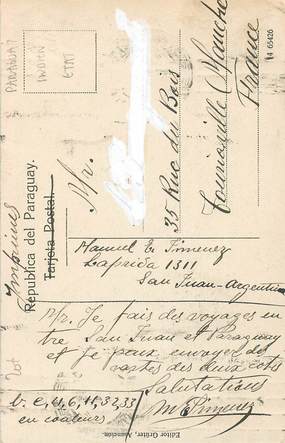 PARAGUAI
INDIEN
ETAT
14 65426
Imprimés
República del Paraguay.
Tarjeta Postal.
Mr.
35 Rue du Bois
Tourlaville Manche
France
Manuel E. Jimenez
Laprida 1311
San Juan-Argentina
Mr. Je fais des voyages en
tre San Juan et Paraguay
et je peux envoyer des
cartes des deux cotés
Salutations
M Jimenez
en couleurs
Editor Grüter, Asunción